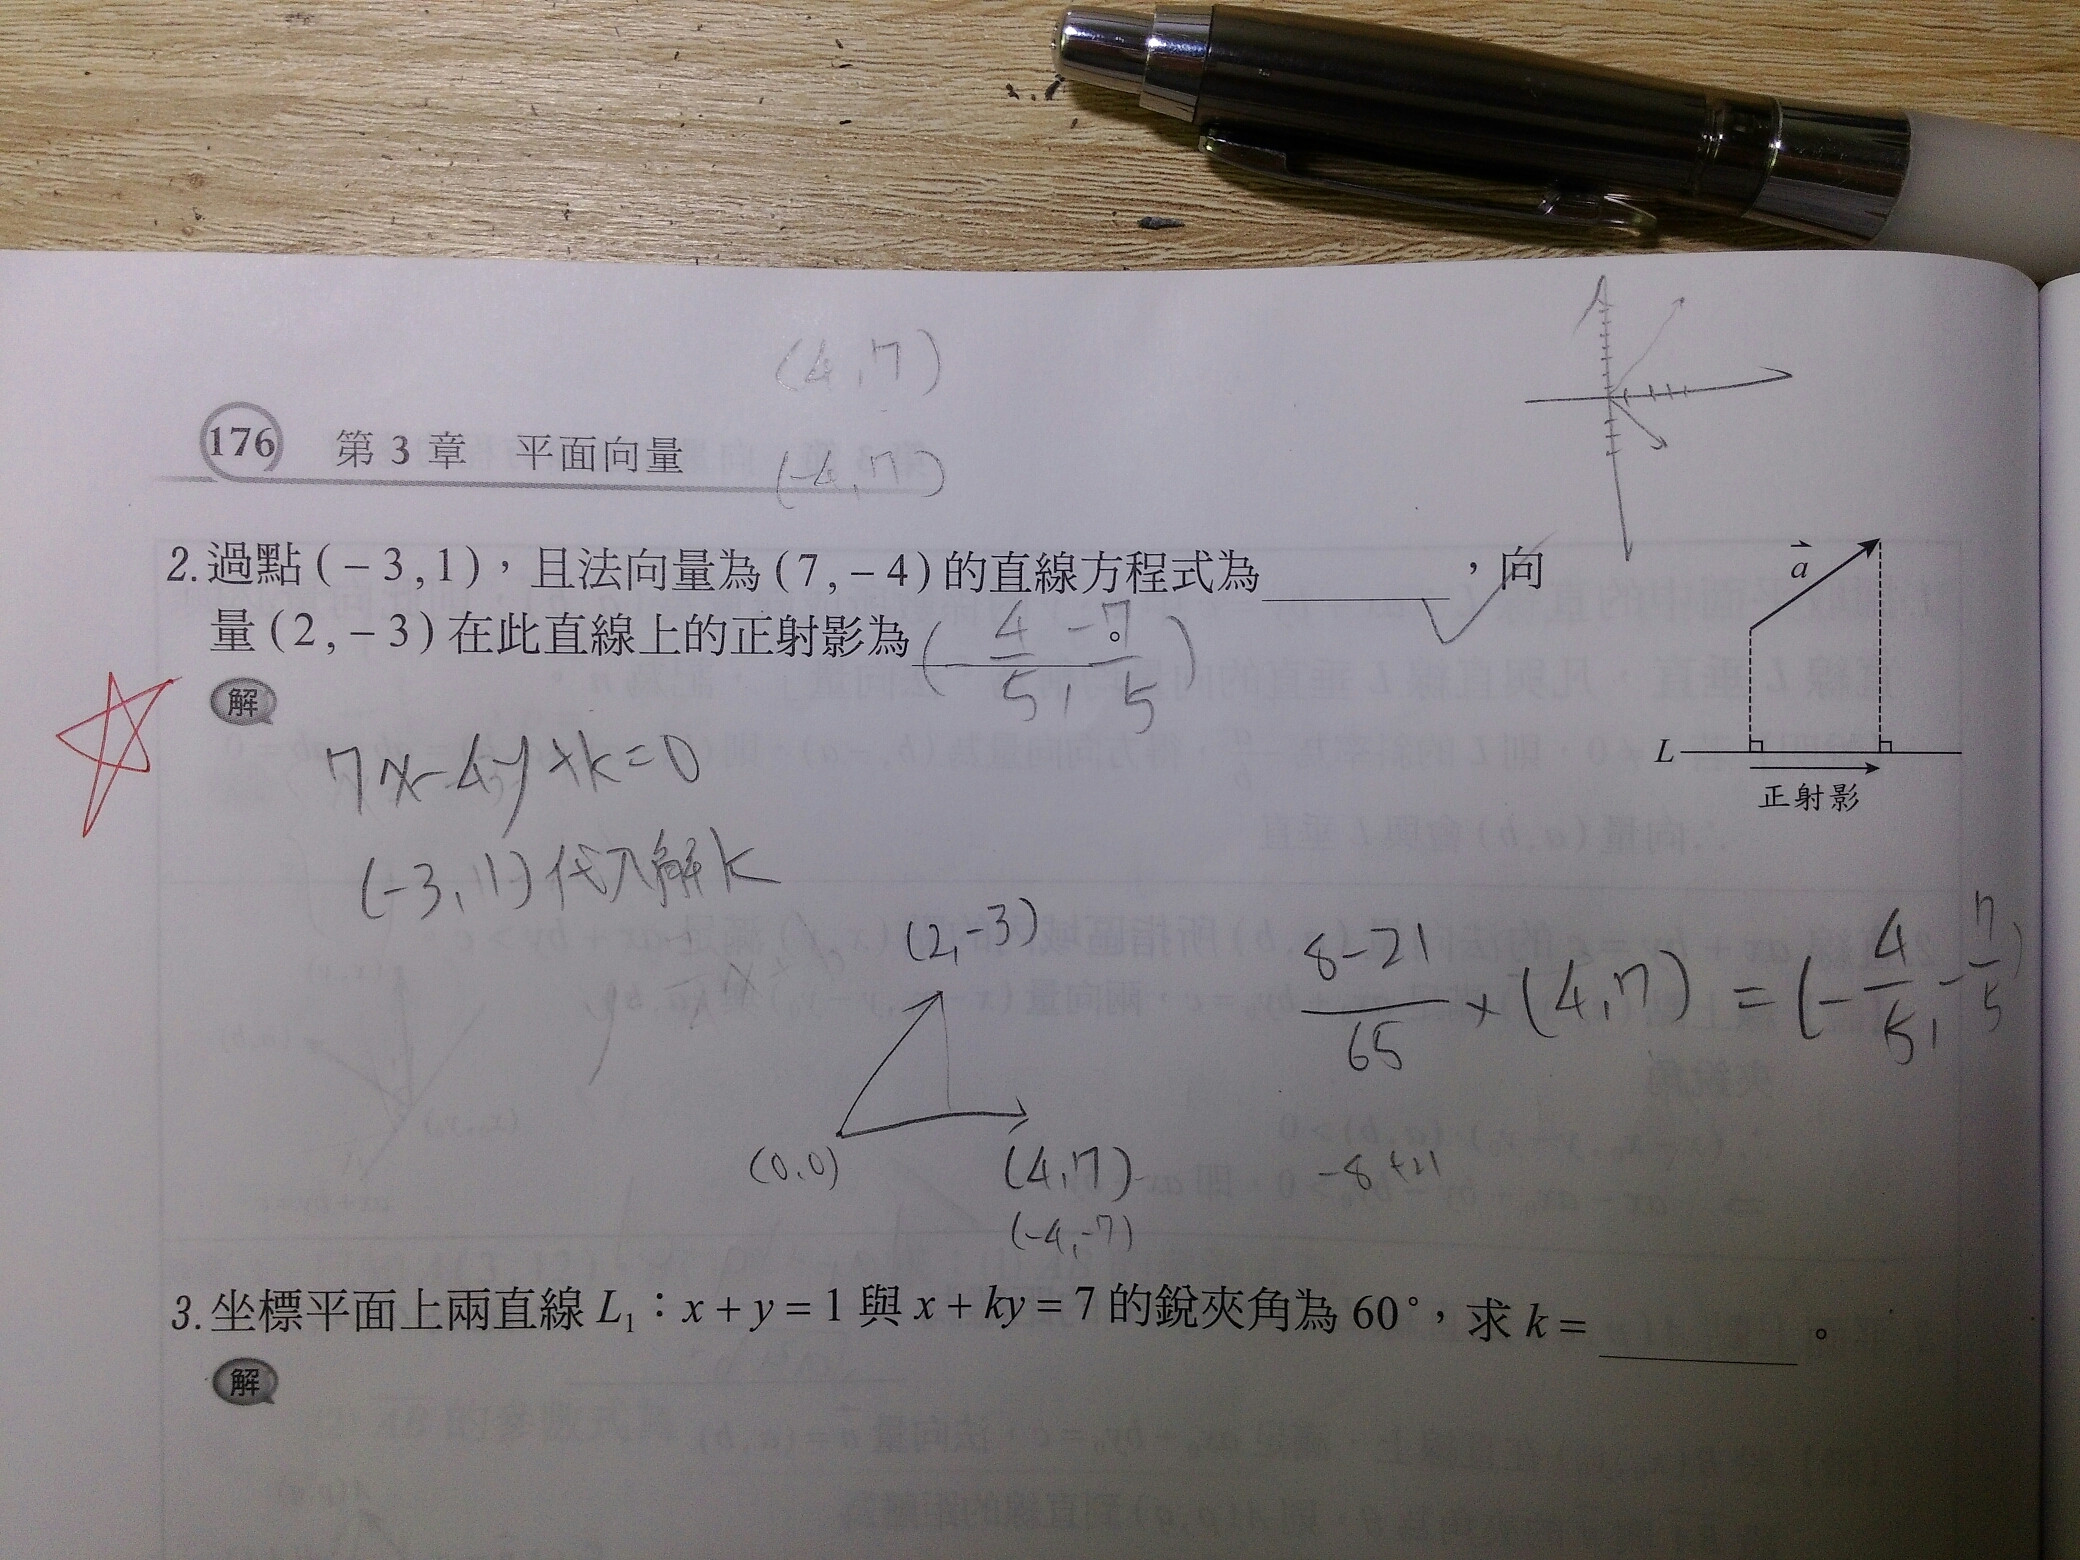 (4,7)
176 第 3 章 平面向量
(-4,7)
2. 過點 (-3,1),且法向量為 (7,-4) 的直線方程式為________,向
量 (2,-3) 在此直線上的正射影為(-4/5, -7/5)。
a
解
L
正射影
7x-4y+k=0
(-3,1)代入解k
(2,-3)
(8-21)/65 × (4,7) = (-4/5, -7/5)
(0,0)
(4,7)
-8+21
(-4,-7)
3. 坐標平面上兩直線 L₁:x+y=1 與 x+ky=7 的銳夾角為 60°,求 k=________。
解